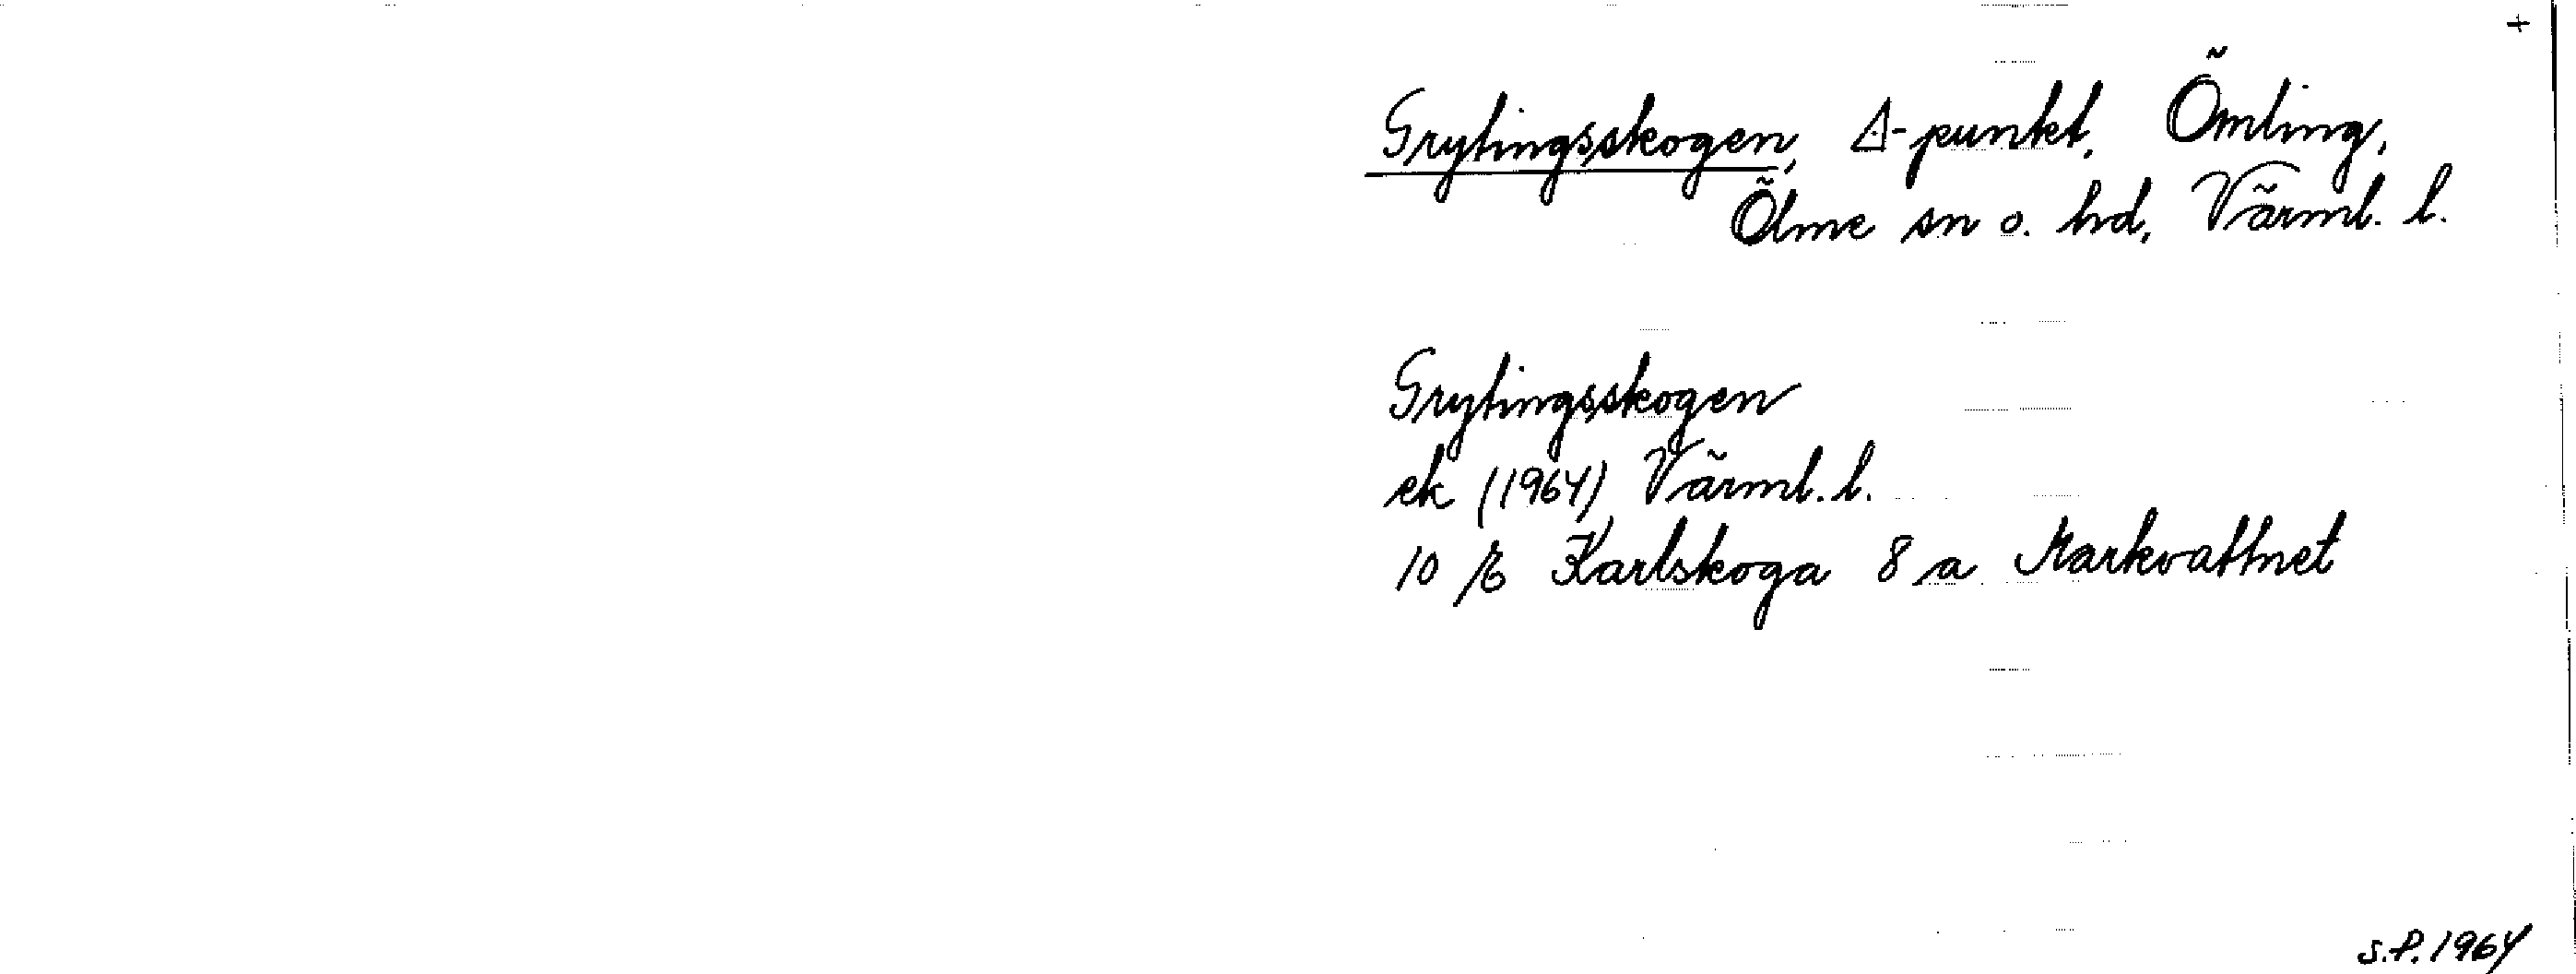 +
Grytingsskogen, Δ-punkt, Ömling,
Ölme sn o. hd, Värml. l.
Grytingsskogen
ek (1964) Värml. l.
10 E Karlskoga 8 a Markvattnet
S.P. 1964